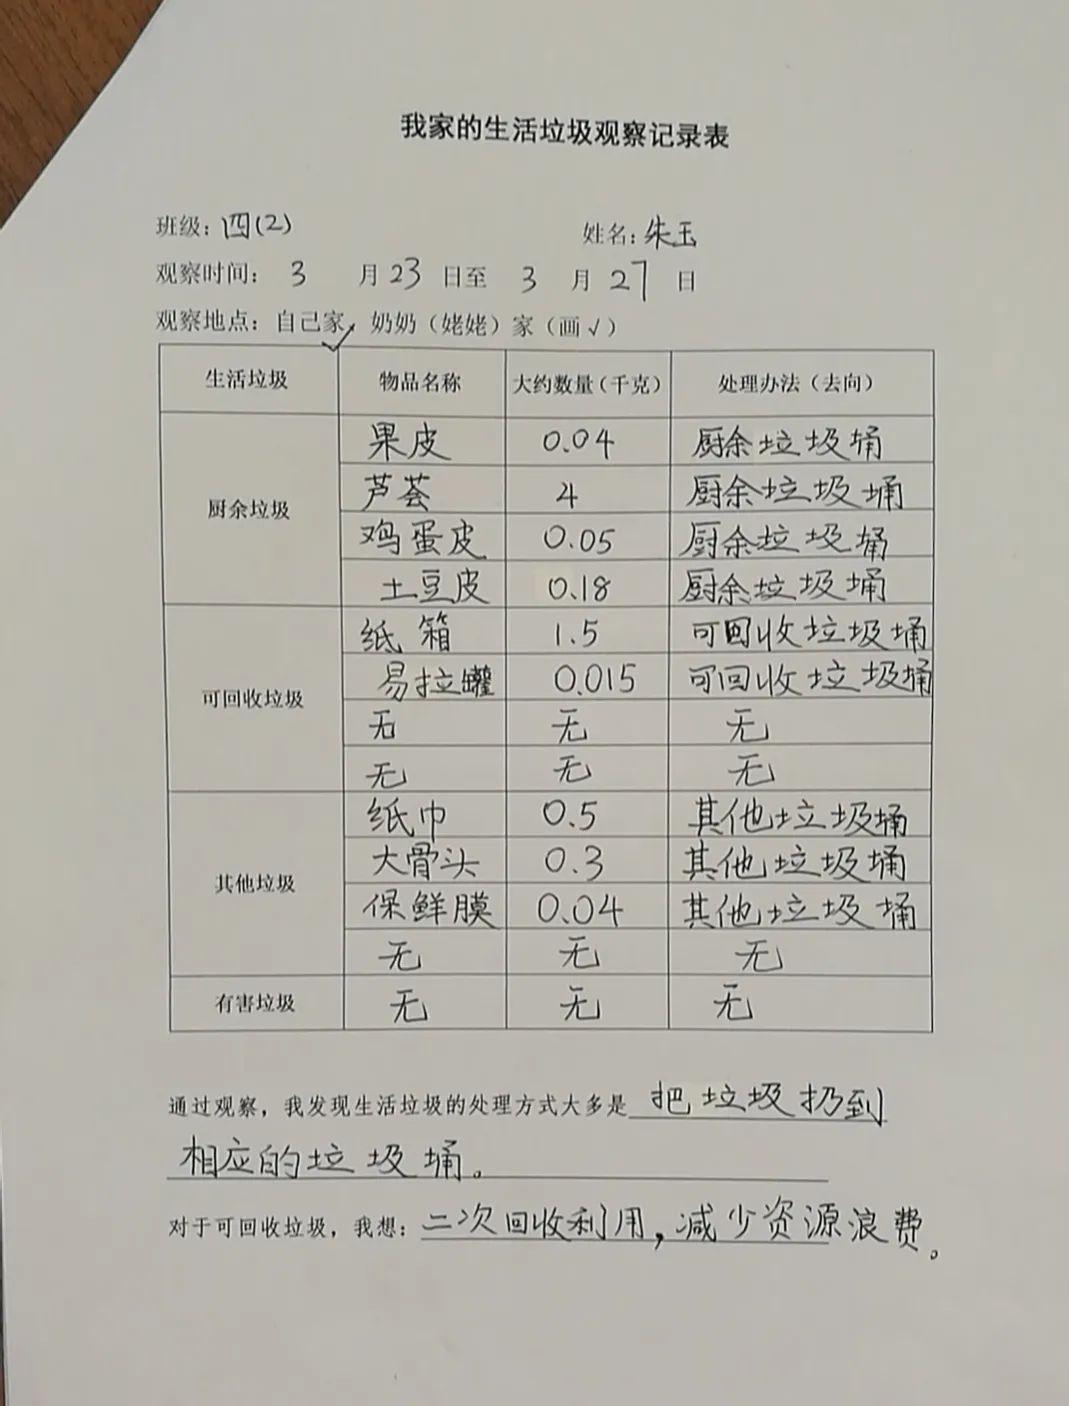 我家的生活垃圾观察记录表
班级：四(2) 姓名：朱玉
观察时间： 3 月 23 日至 3 月 27 日
观察地点：自己家✓ 奶奶（姥姥）家（画√）
生活垃圾 物品名称 大约数量（千克） 处理办法（去向）
厨余垃圾
果皮 0.04 厨余垃圾桶
芦荟 4 厨余垃圾桶
鸡蛋皮 0.05 厨余垃圾桶
土豆皮 0.18 厨余垃圾桶
可回收垃圾
纸箱 1.5 可回收垃圾桶
易拉罐 0.015 可回收垃圾桶
无 无 无
无 无 无
其他垃圾
纸巾 0.5 其他垃圾桶
大骨头 0.3 其他垃圾桶
保鲜膜 0.04 其他垃圾桶
无 无 无
有害垃圾 无 无 无
通过观察，我发现生活垃圾的处理方式大多是 把垃圾扔到
相应的垃圾桶。
对于可回收垃圾，我想：二次回收利用，减少资源浪费。